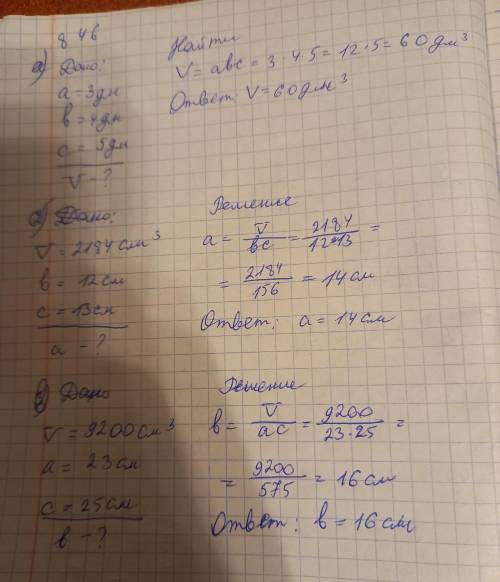 846
а) Дано:
а = 3дм
в = 4дм
с = 5дм
V - ?
Найти
V = авс = 3 · 4 · 5 = 12 · 5 = 60 дм³
Ответ: V = 60 дм³
б) Дано:
V = 2184 см³
в = 12 см
с = 13 см
а - ?
Решение
а = V/вс = 2184/12·13 =
= 2184/156 = 14 см
Ответ: а = 14 см
в) Дано
V = 9200 см³
а = 23 см
с = 25 см
в - ?
Решение
в = V/ас = 9200/23·25 =
= 9200/575 = 16 см
Ответ: в = 16 см